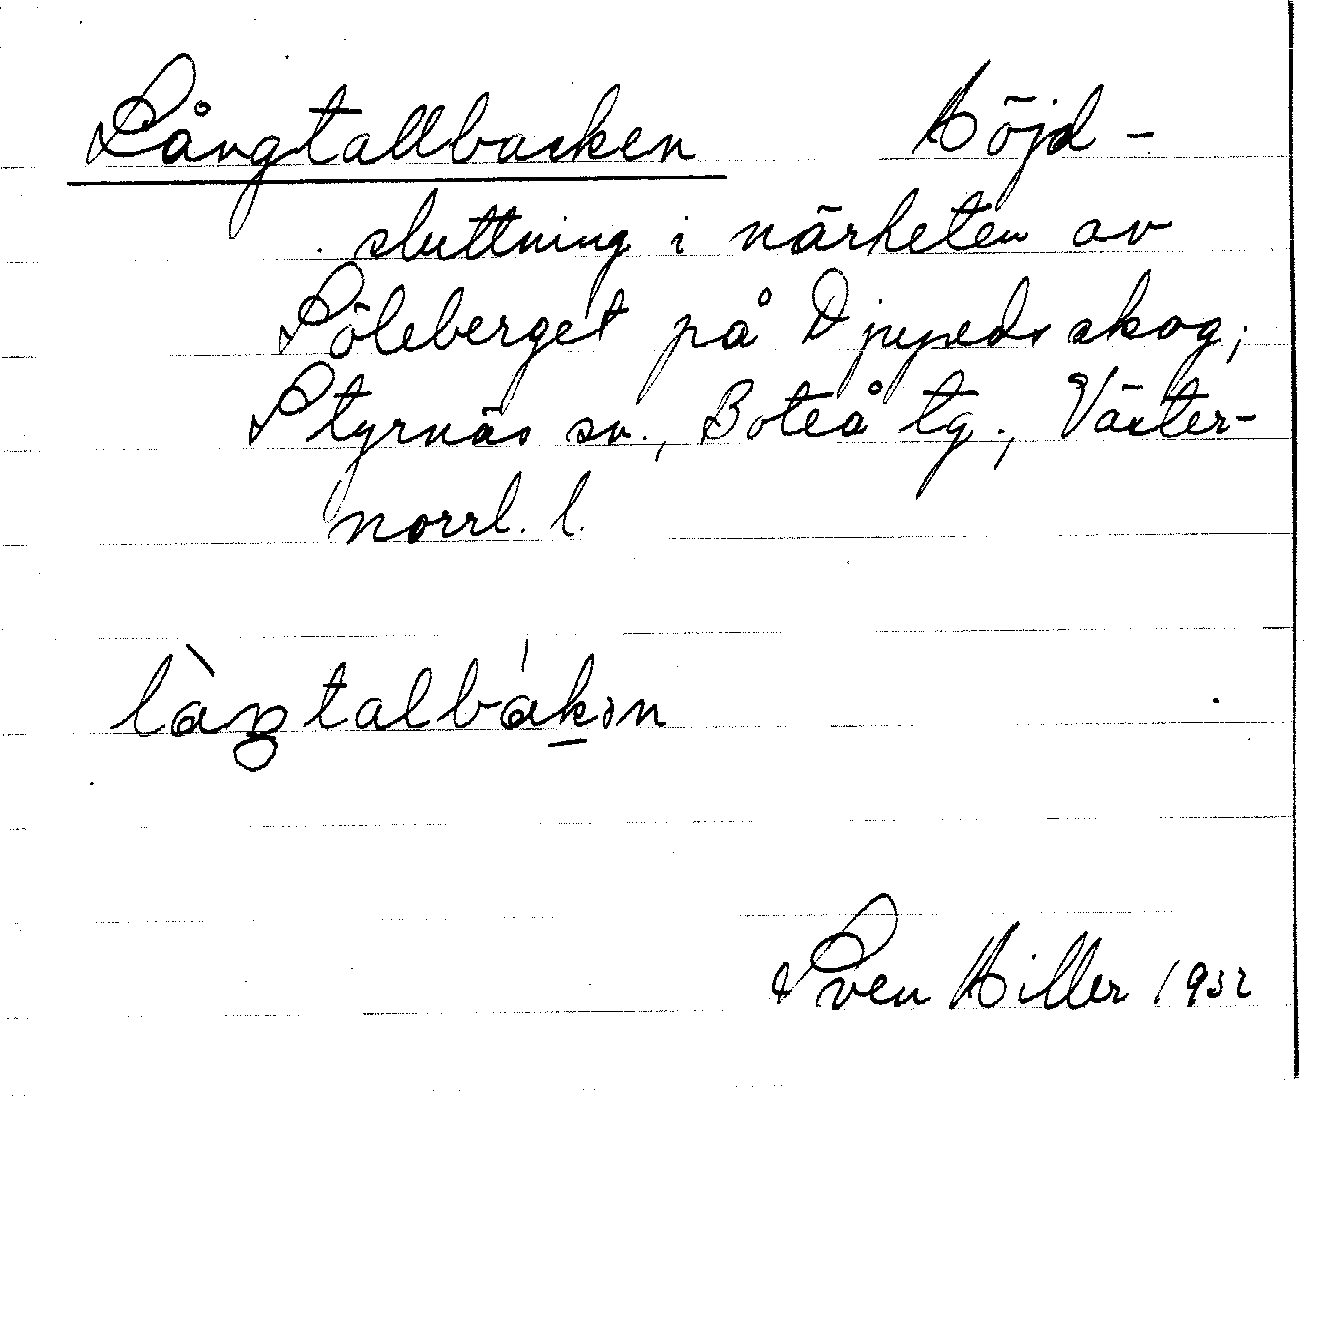 Långtallbacken Höjd-
sluttning i närheten av
Söleberget på Djupeds skog;
Styrnäs sn., Boteå tg., Väster-
norrl. l.
Sven Hiller 1932